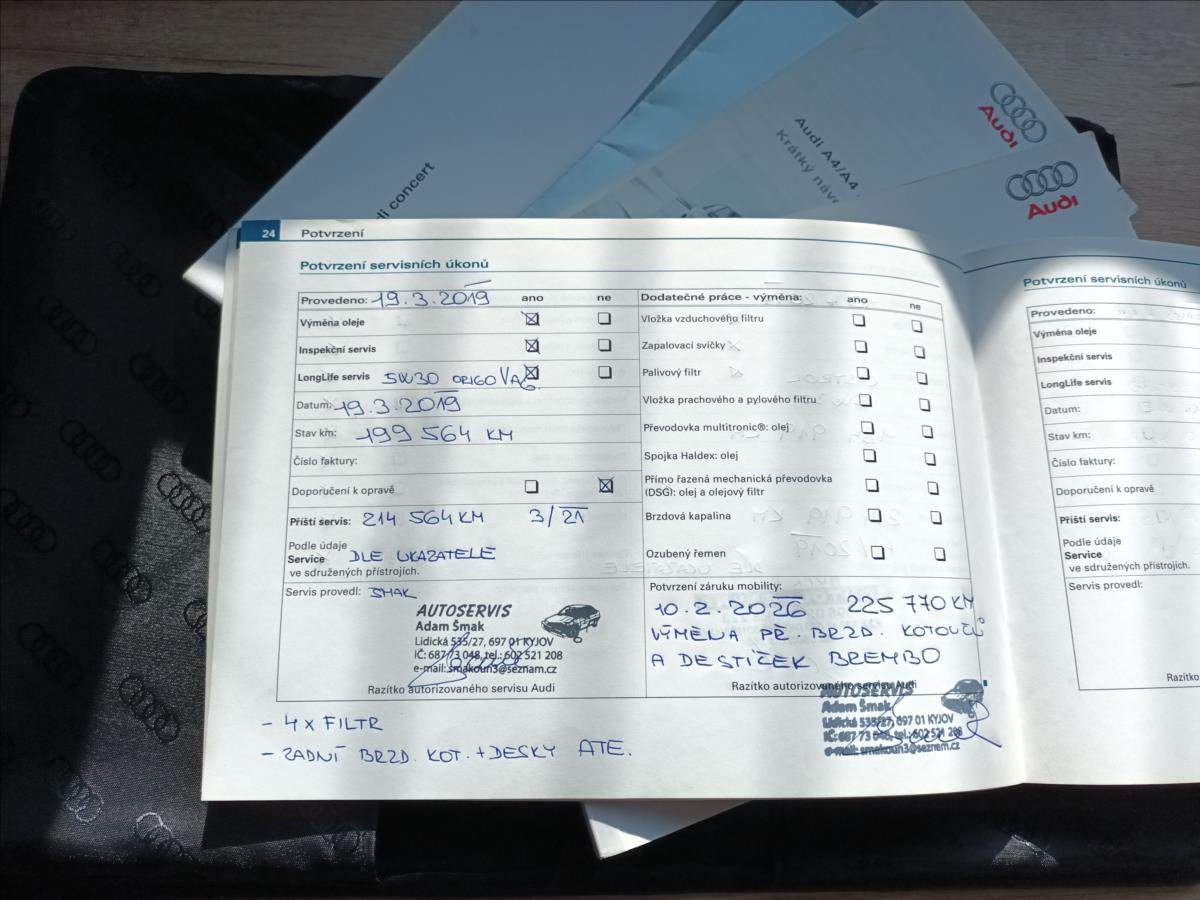 Audi concert
Audi A4/A4
Krátky náv
Audi
Audi
24 Potvrzení
Potvrzení servisních úkonů
Provedeno: 19.3.2019 ano ne
Výměna oleje
Inspekční servis
LongLife servis 5W30 ORIGO VAG
Datum: 19.3.2019
Stav km: 199 564 KM
Číslo faktury:
Doporučení k opravě
Příští servis: 214 564 KM 3/21
Podle údaje
Service DLE UKAZATELE
ve sdružených přístrojích.
Servis provedl: SMAK
AUTOSERVIS
Adam Šmak
Lidická 535/27, 697 01 KYJOV
IČ: 687 73 048, tel.: 602 521 208
e-mail: smakoun3@seznam.cz
Razítko autorizovaného servisu Audi
Dodatečné práce - výměna: ano ne
Vložka vzduchového filtru
Zapalovací svíčky
Palivový filtr
Vložka prachového a pylového filtru
Převodovka multitronic®: olej
Spojka Haldex: olej
Přímo řazená mechanická převodovka
(DSG): olej a olejový filtr
Brzdová kapalina
Ozubený řemen
Potvrzení záruku mobility:
10.2.2026 225 770 KM
VÝMĚNA PĚ. BRZD. KOTOUČŮ
A DESTIČEK BREMBO
Razítko autorizovaného servisu Audi
AUTOSERVIS
Adam Šmak
Lidická 535/27, 697 01 KYJOV
IČ: 687 73 048, tel.: 602 521 208
e-mail: smakoun3@seznam.cz
- 4x FILTR
- ZADNÍ BRZD. KOT. + DESKY ATE.
Potvrzení servisních úkonů
Provedeno:
Výměna oleje
Inspekční servis
LongLife servis
Datum:
Stav km:
Číslo faktury:
Doporučení k opravě
Příští servis:
Podle údaje
Service
ve sdružených přístrojích.
Servis provedl:
Razítko